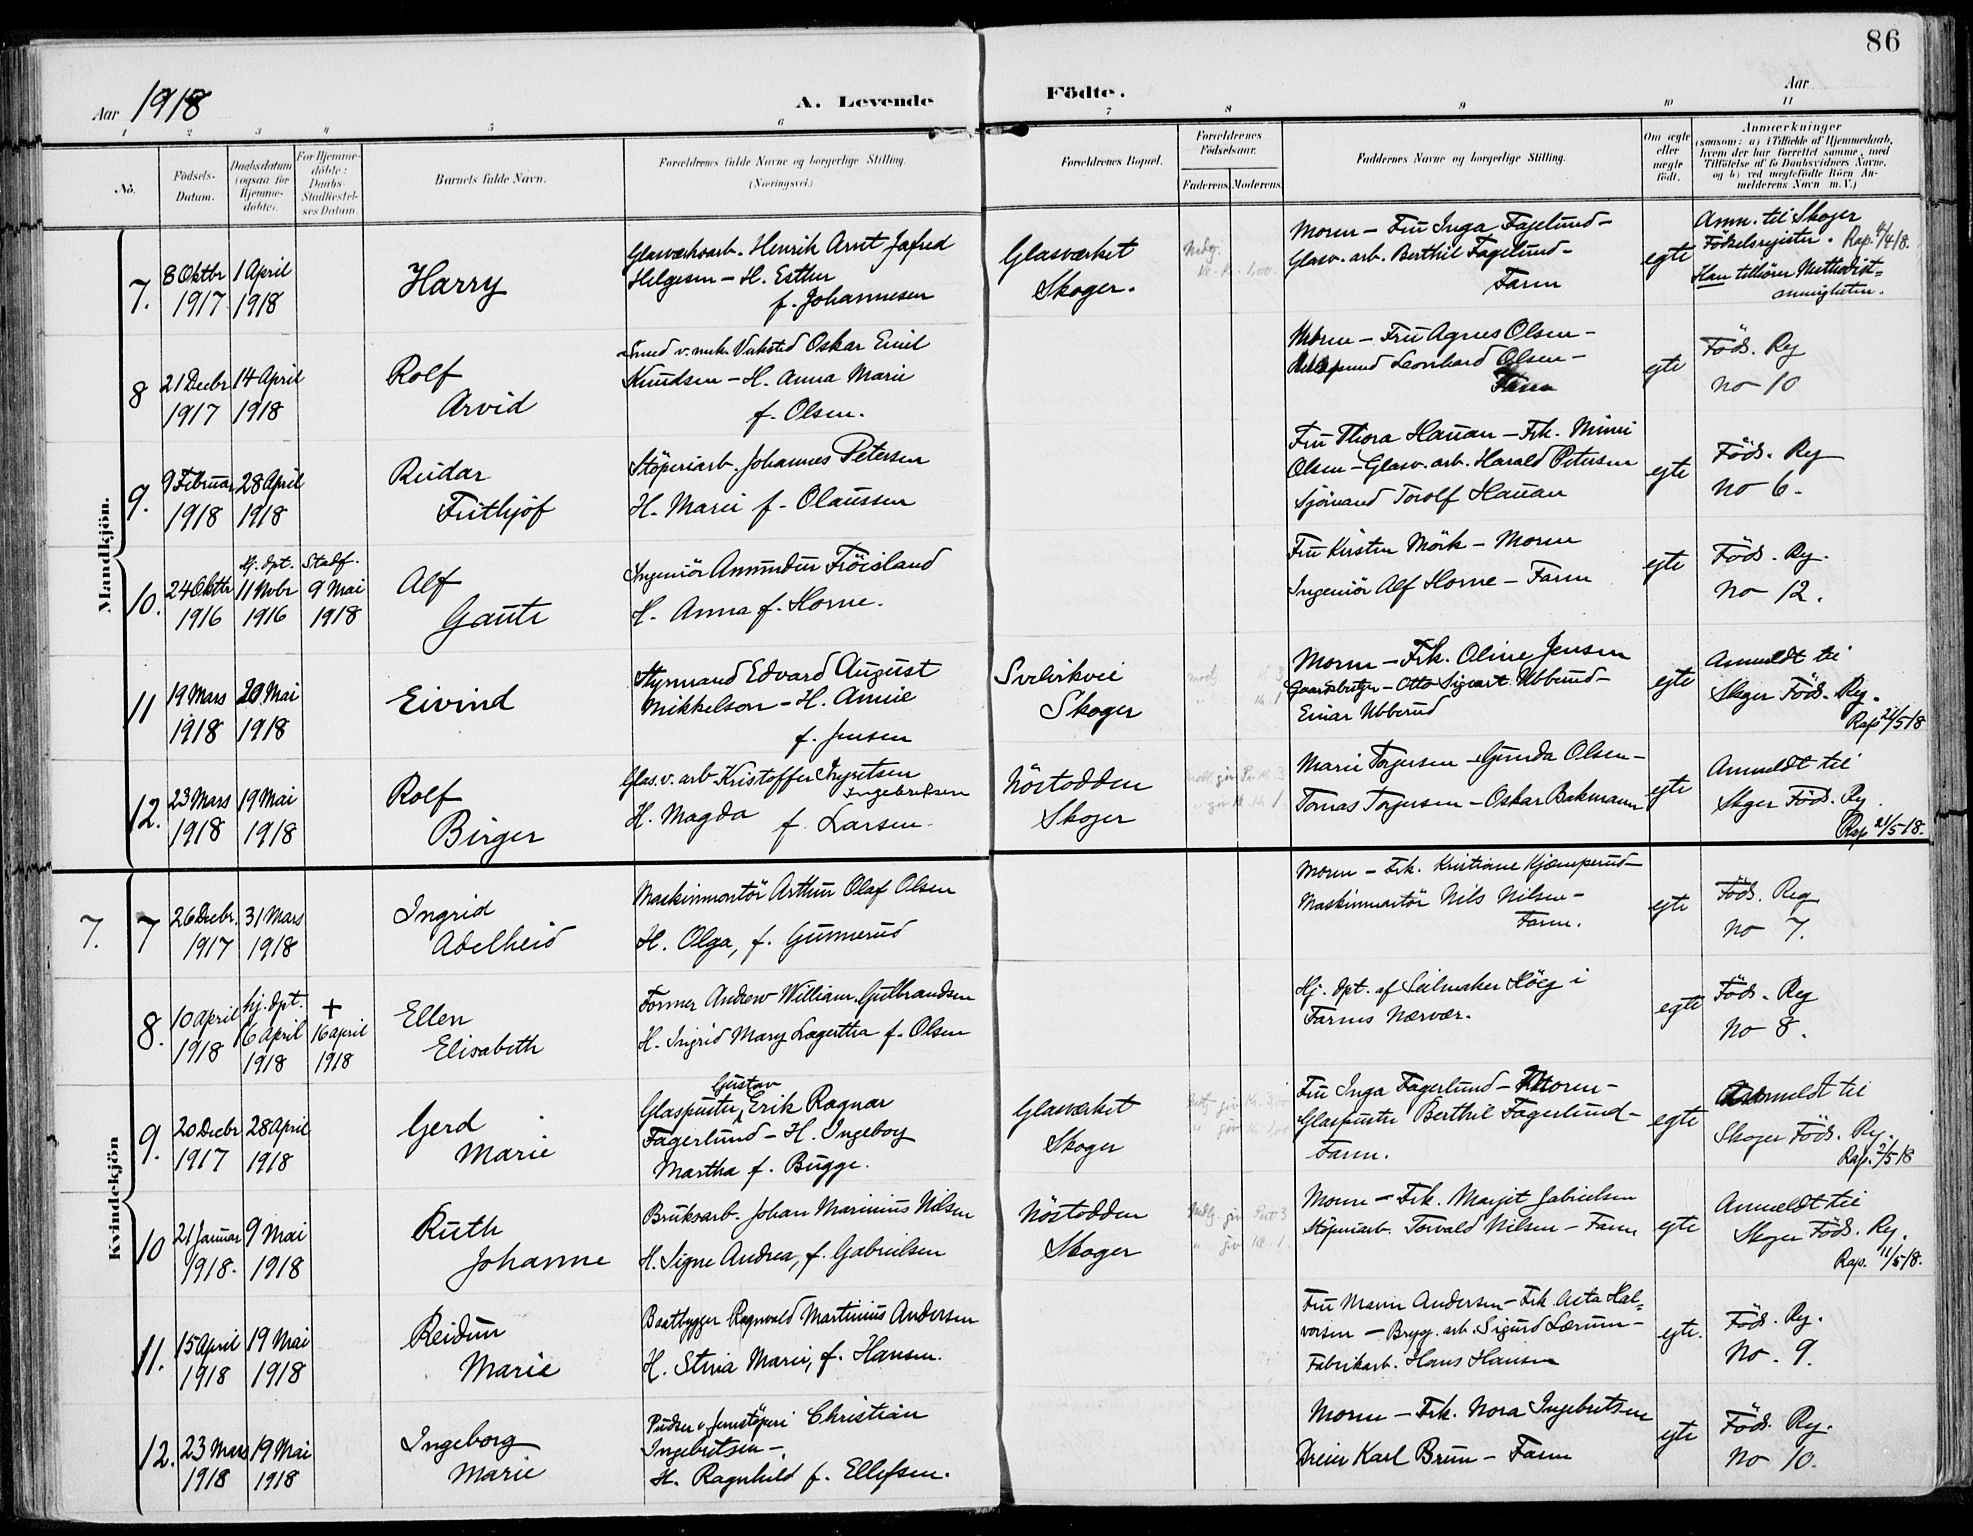 86
Aar 1918
A. Levende
Födte.
Aar
1 2 3 4 5 6 7 8 9 10 11
No.
Födsels-
Datum.
Daabsdatum
(ogsaa for
Hjemme-
döbte).
For Hjemme-
döbte:
Daabs-
Stadfæstel-
ses Datum.
Barnets fulde Navn.
Forældrenes fulde Navne og borgerlige Stilling.
(Næringsvei.)
Forældrenes Bopæl.
Forældrenes
Födselsaar.
Faderens. Moderens.
Faddernes Navne og borgerlige Stilling.
Om ægte
eller
uægte
födt.
Anmærkninger
(saasom: a) i Tilfælde af Hjemmedaab,
hvem der har forrettet samme, med
Tilföielse af to Daabsvidners Navne.
og b) ved uegtefödte Börn An-
melderens Navn m. V.)
Mandkjön.
7.
8 Oktbr
1917
1 April
1918
Harry
Glasværksarb. Henrik Arnt Jafred
Helgesen - H. Esther
f. Johannesen
Glasværket
Skoger.
Moren - Fru Inga Fagelund -
Glasv. arb. Berthil Fagelund -
Faren
egte
Anm. til Skoger
Födselsregister. Rap. 4/4 18.
Han tilhörer Methodist-
menigheten.
8
21 Decbr
1917
14 April
1918
Rolf
Arvid
Smed v. mek. Verksted Oskar Emil
Knudsen - H. Anna Marie
f. Olsen.
Moren - Fru Agnes Olsen -
Leonhard Olsen -
Faren
egte
Föds. Reg
No 10
9.
9 Februar
1918
28 April
1918
Reidar
Frithjof
Stöperiarb. Johannes Petersen
H. Marie f. Olaussen
Fru Thora Hauan - Frk. Mimi
Olsen - Glasv. arb. Harald Petersen
Sjömand Torolf Hauan
egte
Föds. Reg
No 6.
10.
24 Oktbr
1916
Hj. dpt.
11 Novbr
1916
Stadf.
9 Mai
1918
Alf
Gaute
Ingeniör Amunden Fröisland
H. Anna f. Horne.
Fru Kirsten Mörk - Moren
Ingeniör Alf Horne - Faren
egte
Föds. Reg.
No 12.
11
19 Mars
1918
20 Mai
1918
Eivind
Styrmand Edvard August
Mikkelson - H. Annie
f. Jensen
Svelvikvei
Skoger
Moren - Frk. Oline Jensen
Gaardbruger - Otto Sigvart Ubberud -
Einar Ubberud
egte
Anmeldt til
Skger Föds. Reg.
Rap 21/5 18
12.
23 Mars
1918
19 Mai
1918
Rolf
Birger
Glas.v. arb. Kristoffer Ingretsen
Ingebriksen
H. Magda f. Larsen.
Nöstodden
Skoger
Marie Torgersen - Gunda Olsen -
Tomas Torgersen - Oskar Bakmann
egte
Anmeldt til
Skger Föds. Reg.
Rap 21/5 18.
Kvindekjön
7.
7
26 Decbr.
1917
31 Mars
1918
Ingrid
Adelheid
Maskinmontör Arthur Olaf Olsen
H. Olga, f. Gunnerud
Moren - Frk. Kristiane Kjæmperud -
Maskinmontör Nils Nilsen -
Faren.
egte
Föds. Reg
No 7.
8.
10 April
1918
hj. dpt.
16 April
1918
+
16 april
1918
Ellen
Elisabeth
Former Andrew William Gulbrandsen
H. Ingrid Mary Lagertha f. Olsen
Hj. dpt. af Seilmaker Höeg i
Farens Nærvær.
egte
Föds. Reg
No 8.
9.
20 Decbr
1917
28 April
1918
Gerd
Marie
Gustav
Glaspuster, Erik Ragnar
Fagerlund - H. Ingeborg
Martha f. Bugge.
Glasværket
Skoger
Fru Inga Fagerlund - Moren -
Glaspuster Berthil Fagerlund -
Faren.
egte
Anmeldt til
Skoger Föds. Reg.
Rap. 2/5 18
10
21 Januar
1918.
9 Mai
1918
Ruth
Johanne
Bruksarb. Johan Marinius Nilsen
H. Signe Andrea, f. Gabrielsen
Nöstodden
Skoger
Moren - Frk. Margit Gabrielsen
Stöperiarb. Torvald Nilsen - Faren
egte
Anmeldt til
Skoger Föds. Reg.
Rap. 11/5 18.
11.
15 April
1918
19 Mai
1918
Reidun
Marie
Baatbygger Ragnvald Martinius Andersen
H. Stina Marie, f. Hansen.
Fru Maren Andersen - Frk. Asta Hal-
vorsen - Brygg. arb. Sigurd Lærum -
Fabrikarb. Hans Hansen
egte.
Föds. Reg.
No. 9.
12.
23 Mars
1918
19 Mai
1918
Ingeborg
Marie
Pudser v. Jernstöperi Christian
Ingebretsen -
H. Ragnhild f. Ellefsen.
Moren - Frk. Nora Ingebretsen
Dreier Karl Brun - Faren
egte
Föds. Reg.
No 10.